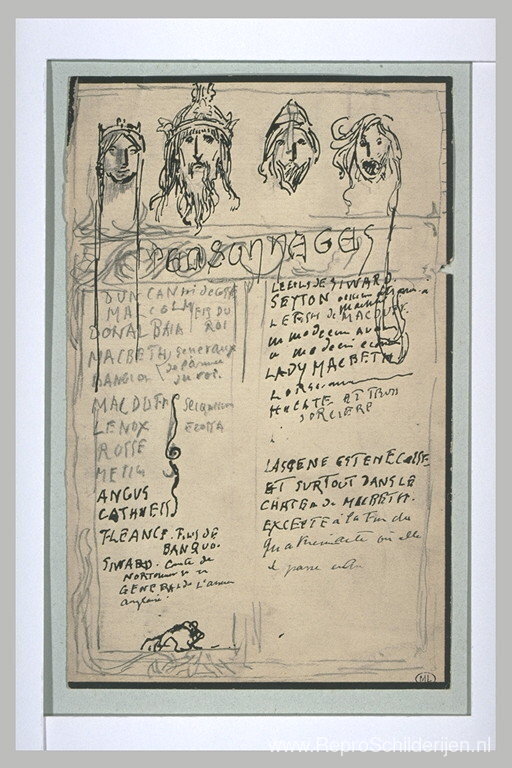 PERSONNAGES
DUNCAN roi de
MALCOLM FILS DU
DONALBAIN ROI
MACBETH Generaux
BANQUO de l'armee
du roi.
MACDUFF Seigneurs
LENOX ECOSSE
ROSSE
ANGUS
CATHNESS
FLEANCE. Fils de
BANQUO.
SIWARD. Comte de
GENERAL de L'armee
anglaise.
LE FILS DE SIWARD.
SEYTON
LE FILS de MACDUFF.
un medecin
un medecin
LADY MACBETH
HECATE ET TROIS
SORCIERE
LA SCENE EST EN ECOSSE
ET SURTOUT DANS LE
CHATEAU de MACBETH.
EXCEPTE à la Fin du
où elle
se passe
ML
www.ReproSchilderijen.nl